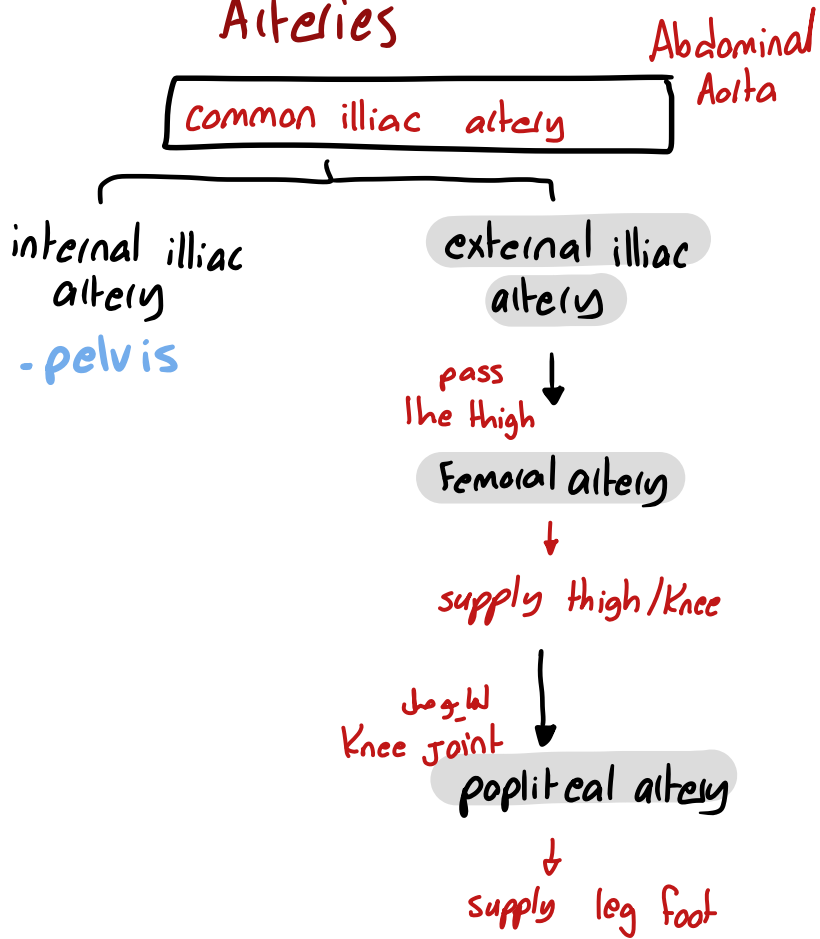 Arteries
Abdominal
Aorta
common illiac artery
internal illiac
artery
- pelvis
external illiac
artery
pass
the thigh
Femoral artery
supply thigh/Knee
Knee joint
popliteal artery
supply leg foot